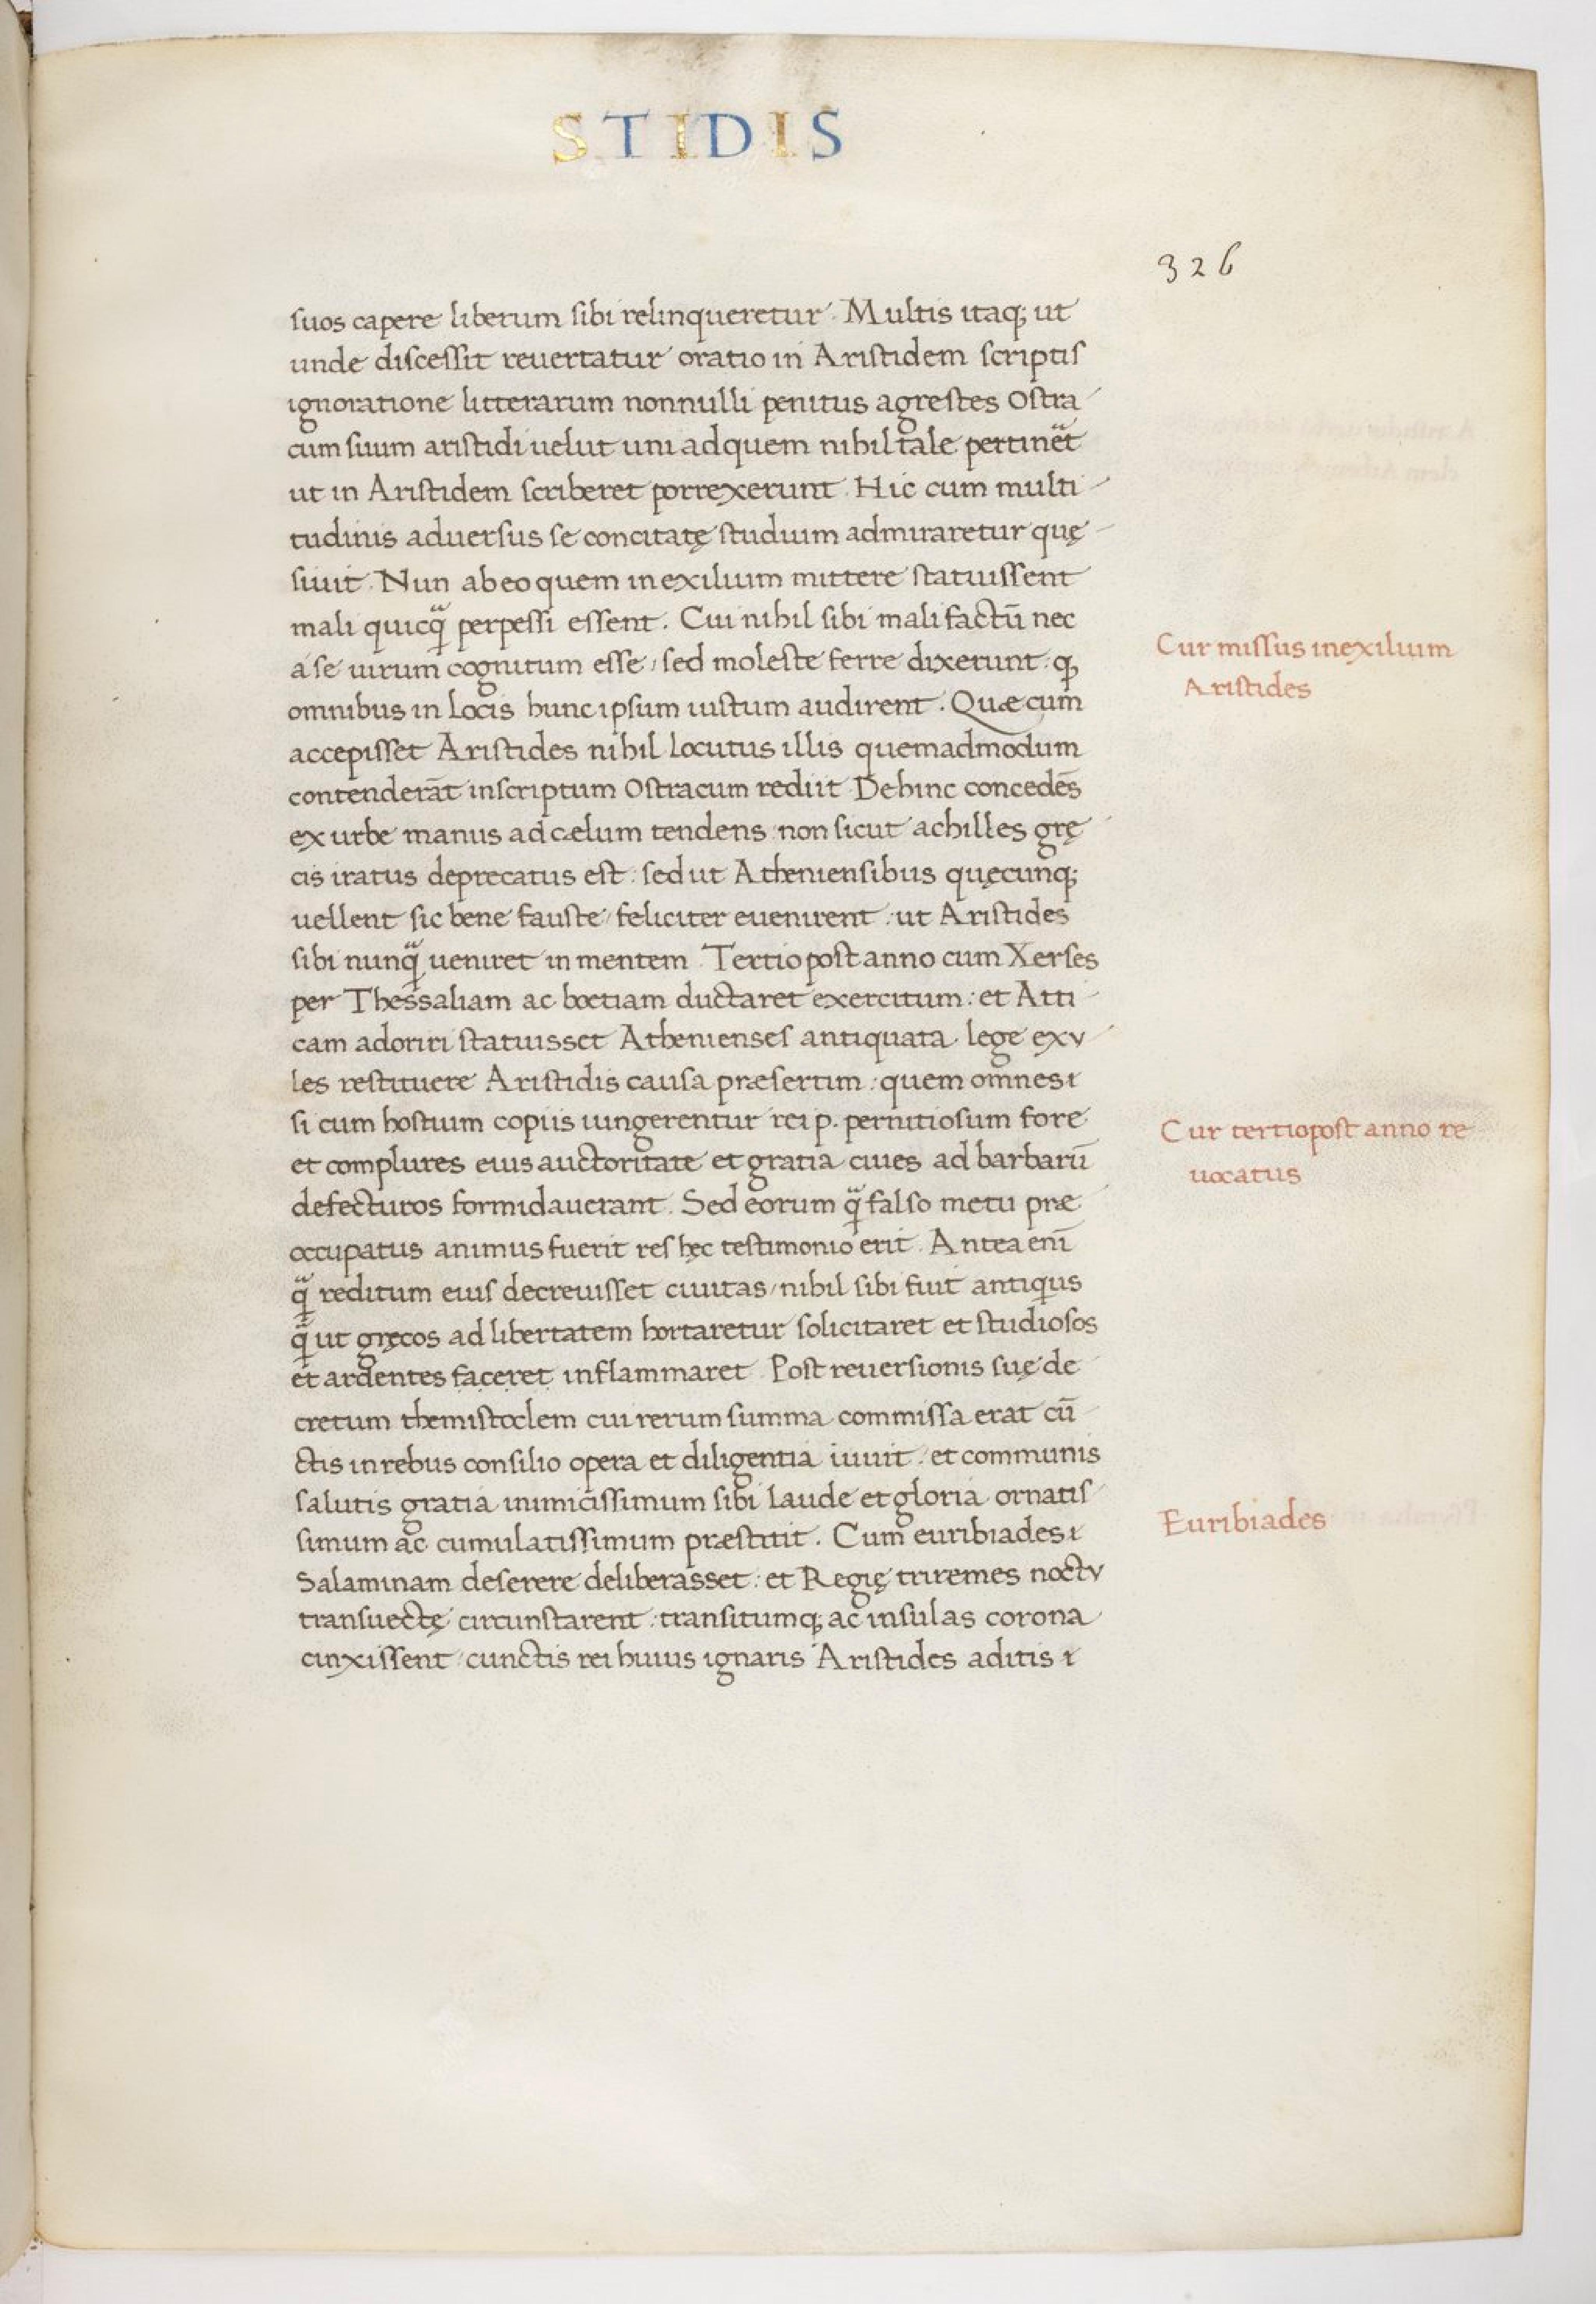 STIDIS
326
suos capere liberum sibi relinqueretur. Multis itaq; ut
unde discessit reuertatur oratio in Aristidem scriptis
ignoratione litterarum nonnulli pęnitus agrestes Ostra
cum suum aristidi uelut uni ad quem nihil tale pertinet
ut in Aristidem scriberet porrexerunt. Hic cum multi
tudinis aduersus se concitatę studium admiraretur quę
siuit. Nun ab eo quem in exilium mittere statuissent
mali quicq̃ perpessi essent. Cui nihil sibi mali factũ nec
a se uirum cognitum esse, sed moleste ferre dixerunt: ꝙ
omnibus in Locis hunc ipsum iustum audirent. Quæ cum
accepisset Aristides nihil locutus illis quemadmodum
contenderãt inscriptum Ostracum rediit. Dehinc concedẽs
ex urbe manus ad cælum tendens: non sicut achilles grę
cis iratus deprecatus est: sed ut Atheniensibus quęcunq;
uellent sic bene fauste, feliciter euenirent: ut Aristides
sibi nunq̃ ueniret in mentem. Tertio post anno cum Xerses
per Thessaliam ac boetiam ductaret exercitum: et Atti
cam adoriri statuisset Athenienses antiquata lege exv
les restituere Aristidis causa præsertim: quem omnes ı
si cum hostium copiis iungerentur rei p. pernitiosum fore
et complures eius auctoritate et gratia ciues ad barbarũ
defecturos formidauerant. Sed eorum q̃ falso metu præ
occupatus animus fuerit res hęc testimonio erit. Antea enĩ
q̃ reditum eius decreuisset ciuitas, nihil sibi fuit antiqus
q̃ ut gręcos ad libertatem hortaretur solicitaret et studiosos
et ardentes faceret inflammaret. Post reuersionis suę de
cretum themistoclem cui rerum summa commissa erat cũ
ctis in rebus consilio opera et diligentia iuuit: et communis
salutis gratia inimicissimum sibi laude et gloria ornatis
simum ac cumulatissimum præstitit. Cum euribiades ı
Salaminam deserere deliberasset: et Regię triremes noctv
transuectę circunstarent: transitumq; ac insulas corona
cinxissent, cunctis rei huius ignaris Aristides aditis ı
Cur missus in exilium
Aristides
Cur tertio post anno re
uocatus
Euribiades